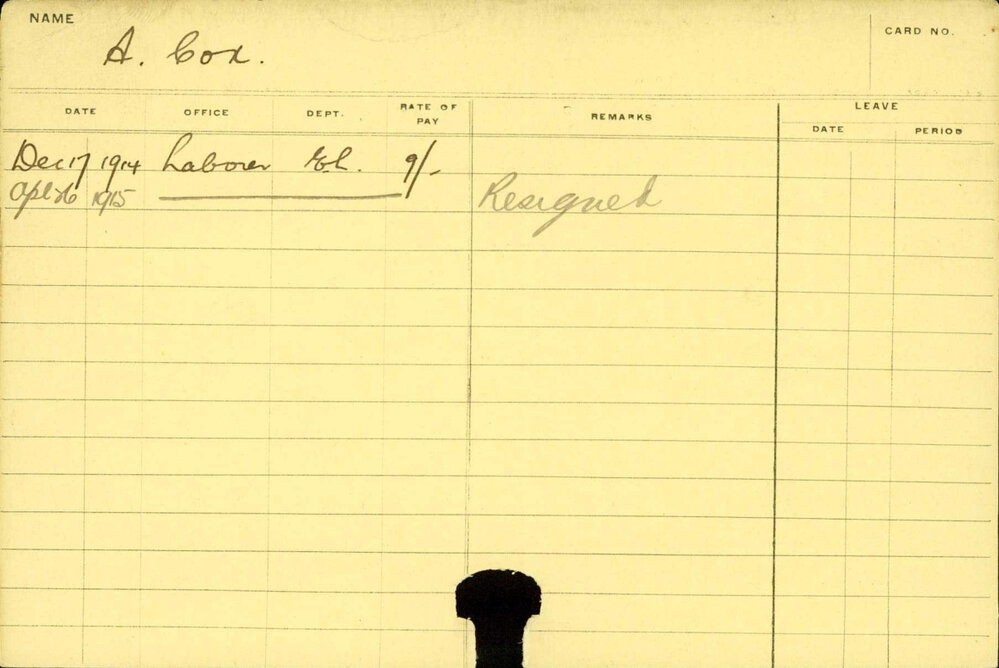 NAME
A. Cox.
CARD NO.
DATE OFFICE DEPT. RATE OF PAY REMARKS LEAVE
DATE PERIOD
Dec 17 1914 Laborer 9/-
Apl 26 1915 Resigned